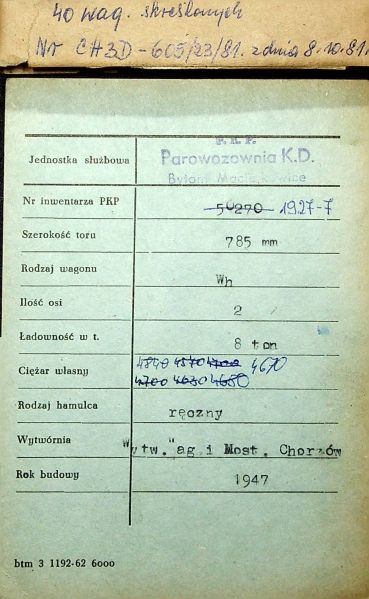 40 wag. skreślonych
Nr CH3D-605/23/81. z dnia 8.10.81r.
P. K. P.
Jednostka służbowa Parowozownia K.D.
Bytom Maciejkowice
Nr inwentarza PKP 50270 1927-7
Szerokość toru 785 mm
Rodzaj wagonu Wh
Ilość osi 2
Ładowność w t. 8 ton
4840 4570 4700 4670
Ciężar własny 4700 4630 4650
Rodzaj hamulca ręczny
Wytwórnia Wytw."ag i Most. Chorzów
Rok budowy 1947
btm 3 1192-62 6000